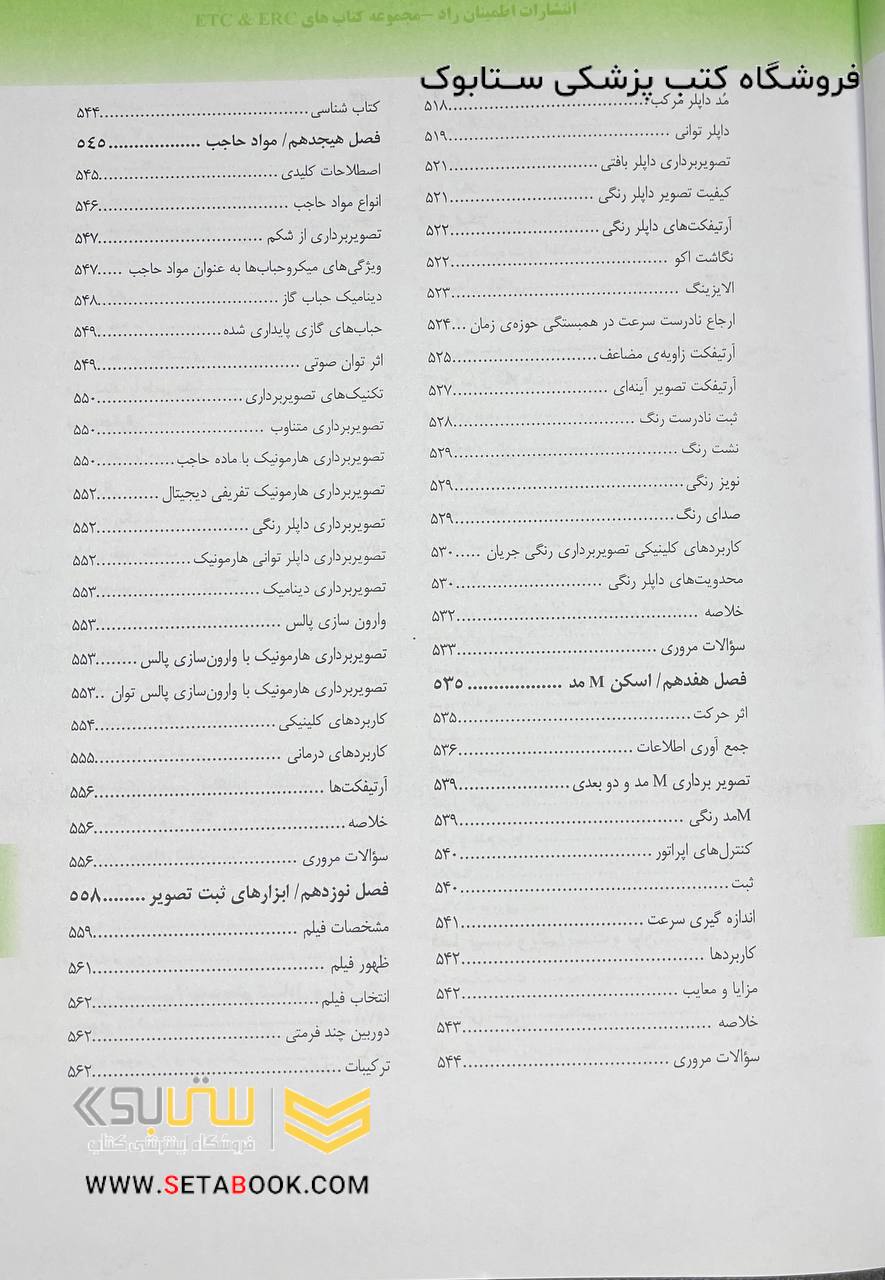 انتشارات اطمینان راد –مجموعه کتاب های ETC & ERC
فروشگاه کتب پزشکی ستابوک
مُد داپلر مُرکب.......................................۵۱۸
داپلر توانی .......................................۵۱۹
تصویربرداری داپلر بافتی ..........................۵۲۱
کیفیت تصویر داپلر رنگی ..........................۵۲۱
آرتیفکت‌های داپلر رنگی ..........................۵۲۲
نگاشت اکو .......................................۵۲۲
الایزینگ .......................................۵۲۳
ارجاع نادرست سرعت در همبستگی حوزه‌ی زمان ...۵۲۴
آرتیفکت زاویه‌ی مضاعف..........................۵۲۵
آرتیفکت تصویر آینه‌ای ..........................۵۲۷
ثبت نادرست رنگ ..........................۵۲۸
نشت رنگ .......................................۵۲۹
نویز رنگی.......................................۵۲۹
صدای رنگ.......................................۵۲۹
کاربردهای کلینیکی تصویربرداری رنگی جریان .....۵۳۰
محدویت‌های داپلر رنگی ..........................۵۳۰
خلاصه .......................................۵۳۲
سؤالات مروری .......................................۵۳۳
فصل هفدهم/ اسکن M مد ..................۵۳۵
اثر حرکت.......................................۵۳۵
جمع آوری اطلاعات ..........................۵۳۶
تصویر برداری M مد و دو بعدی....................۵۳۹
Mمد رنگی .......................................۵۳۹
کنترل‌های اپراتور .......................................۵۴۰
ثبت.......................................۵۴۰
اندازه گیری سرعت ..........................۵۴۱
کاربردها .......................................۵۴۲
مزایا و معایب .......................................۵۴۲
خلاصه .......................................۵۴۳
سؤالات مروری .......................................۵۴۴
کتاب شناسی.......................................۵۴۴
فصل هیجدهم/ مواد حاجب ..................۵۴۵
اصطلاحات کلیدی ..........................۵۴۵
انواع مواد حاجب ..........................۵۴۶
تصویربرداری از شکم ..........................۵۴۷
ویژگی‌های میکروحباب‌ها به عنوان مواد حاجب .....۵۴۷
دینامیک حباب گاز ..........................۵۴۸
حباب‌های گازی پایداری شده......................۵۴۹
اثر توان صوتی ..........................۵۴۹
تکنیک‌های تصویربرداری..........................۵۵۰
تصویربرداری متناوب ..........................۵۵۰
تصویربرداری هارمونیک با ماده حاجب...............۵۵۰
تصویربرداری هارمونیک تفریقی دیجیتال ............۵۵۲
تصویربرداری داپلر رنگی ..........................۵۵۲
تصویربرداری داپلر توانی هارمونیک..................۵۵۲
تصویربرداری دینامیک ..........................۵۵۳
وارون سازی پالس ..........................۵۵۳
تصویربرداری هارمونیک با وارون‌سازی پالس ........۵۵۳
تصویربرداری هارمونیک با وارون‌سازی پالس توان ..۵۵۳
کاربردهای کلینیکی..........................۵۵۴
کاربردهای درمانی ..........................۵۵۵
آرتیفکت‌ها .......................................۵۵۶
خلاصه.......................................۵۵۶
سؤالات مروری .......................................۵۵۶
فصل نوزدهم/ ابزارهای ثبت تصویر ........۵۵۸
مشخصات فیلم ..........................۵۵۹
ظهور فیلم .......................................۵۶۱
انتخاب فیلم.......................................۵۶۲
دوربین چند فرمتی ..........................۵۶۲
ترکیبات .......................................۵۶۲
ستابوک
فروشگاه اینترنتی کتاب
WWW.SETABOOK.COM